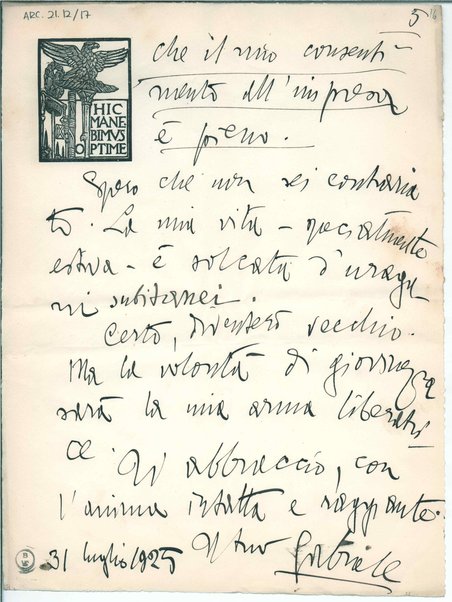 ARC. 21.12/17
5
che il mio consenti-
mento all'impresa
è pieno.
HIC
MANE
BIMVS
OPTIME
Spero che non sei contraria
to. La mia vita – specialmente
estiva – è solcata d'uraga
ni subitanei.
Certo, diventerò vecchio.
Ma la volontà di giovinezza
sarà la mia arma liberatri-
ce.
Vi abbraccio, con
l'anima intatta e raggiante.
Il tuo
31 luglio 1925
Gabriele